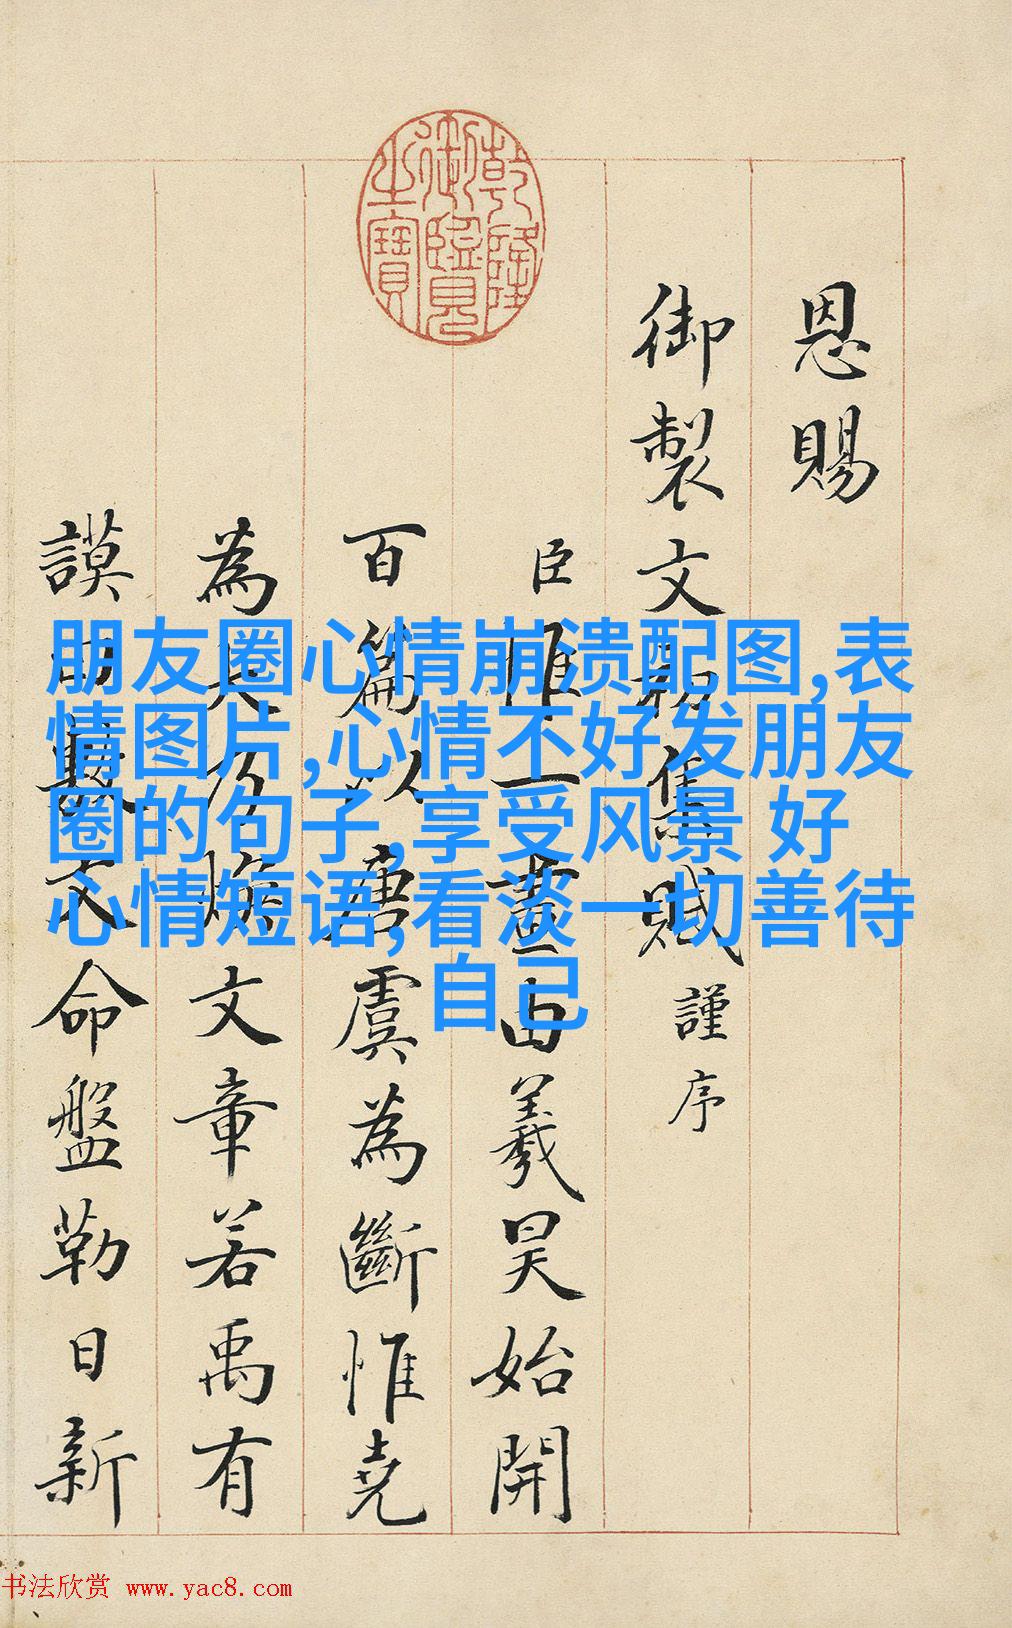 乾隆御覽之寶
恩賜
御製文初集賦謹序
臣惟一畫由羲昊始開
百篇以唐虞為斷惟堯
為大乃煥文章若禹有
謨曰敷文命盤勒日新
朋友圈心情崩溃配图,表
情图片,心情不好发朋友
圈的句子,享受风景 好
心情短语,看淡一切善待
自己
书法欣赏 www.yac8.com